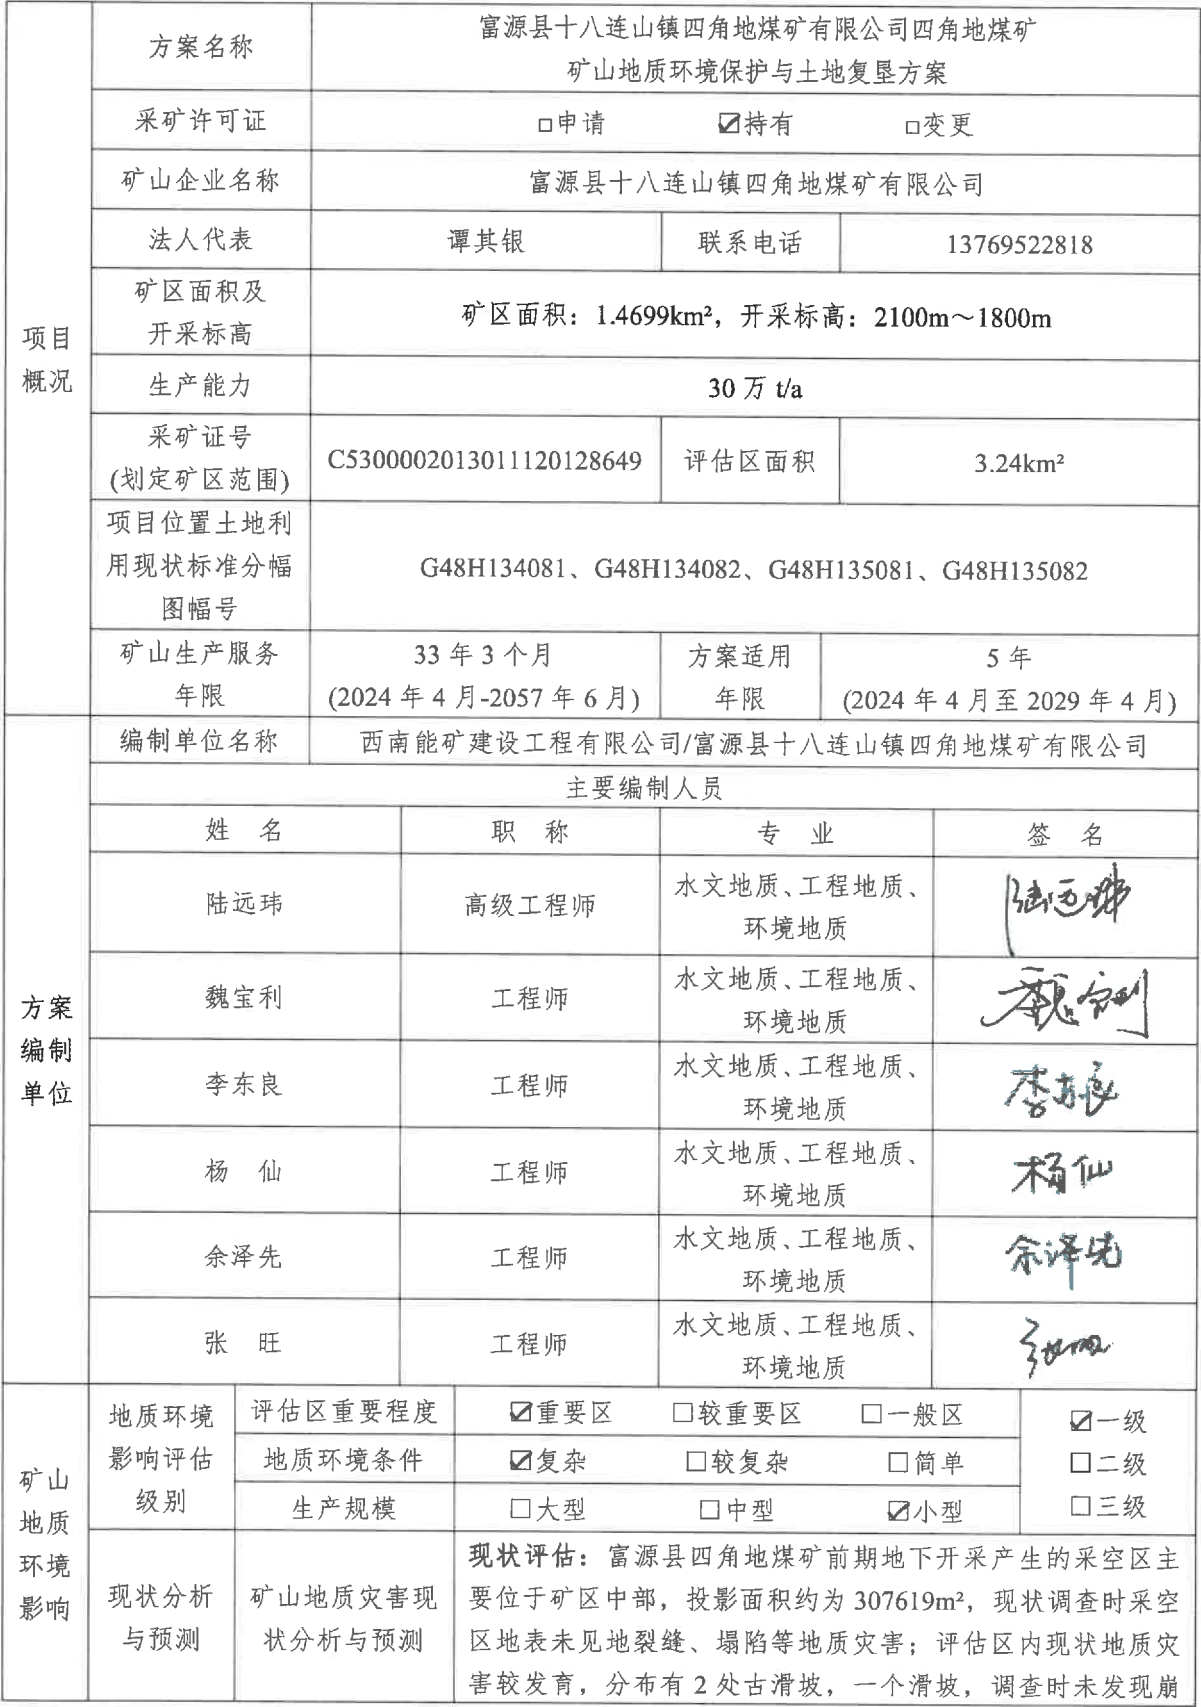 项目
概况
方案名称
富源县十八连山镇四角地煤矿有限公司四角地煤矿
矿山地质环境保护与土地复垦方案
采矿许可证
□申请 ☑持有 □变更
矿山企业名称
富源县十八连山镇四角地煤矿有限公司
法人代表
谭其银
联系电话
13769522818
矿区面积及
开采标高
矿区面积：1.4699km²，开采标高：2100m～1800m
生产能力
30 万 t/a
采矿证号
(划定矿区范围)
C5300002013011120128649
评估区面积
3.24km²
项目位置土地利
用现状标准分幅
图幅号
G48H134081、G48H134082、G48H135081、G48H135082
矿山生产服务
年限
33 年 3 个月
(2024 年 4 月-2057 年 6 月)
方案适用
年限
5 年
(2024 年 4 月至 2029 年 4 月)
方案
编制
单位
编制单位名称
西南能矿建设工程有限公司/富源县十八连山镇四角地煤矿有限公司
主要编制人员
姓 名 职 称 专 业 签 名
陆远玮
高级工程师
水文地质、工程地质、
环境地质
陆远玮
魏宝利
工程师
水文地质、工程地质、
环境地质
魏宝利
李东良
工程师
水文地质、工程地质、
环境地质
李东良
杨 仙
工程师
水文地质、工程地质、
环境地质
杨仙
余泽先
工程师
水文地质、工程地质、
环境地质
余泽先
张 旺
工程师
水文地质、工程地质、
环境地质
张旺
矿山
地质
环境
影响
地质环境
影响评估
级别
评估区重要程度
☑重要区 □较重要区 □一般区
地质环境条件
☑复杂 □较复杂 □简单
生产规模
□大型 □中型 ☑小型
☑一级
□二级
□三级
现状分析
与预测
矿山地质灾害现
状分析与预测
现状评估：富源县四角地煤矿前期地下开采产生的采空区主
要位于矿区中部，投影面积约为 307619m²，现状调查时采空
区地表未见地裂缝、塌陷等地质灾害；评估区内现状地质灾
害较发育，分布有 2 处古滑坡，一个滑坡，调查时未发现崩